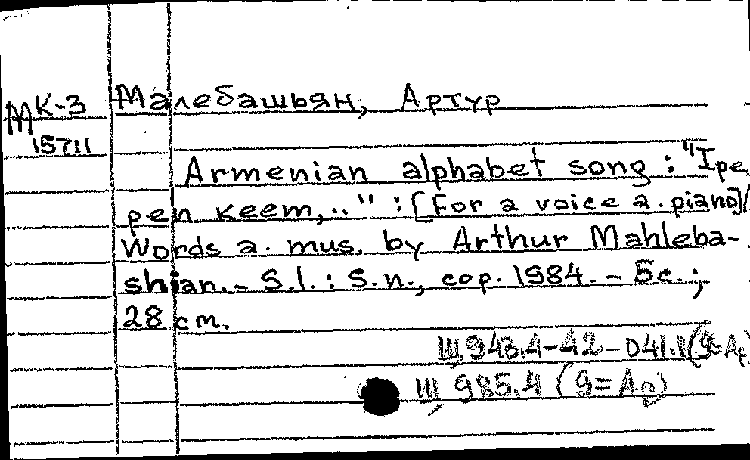 МК-3 Малебашьян, Артур
15711
Armenian alphabet song : "Ipe
pen keem,.." : [For a voice a. piano]/
Words a. mus. by Arthur Mahleba-
shian. - S.l. : S.n., cop. 1984. - 5c.;
28 cm.
Щ943.4-42-041.1(9=Ар)
Щ985.4 (9=Ар)